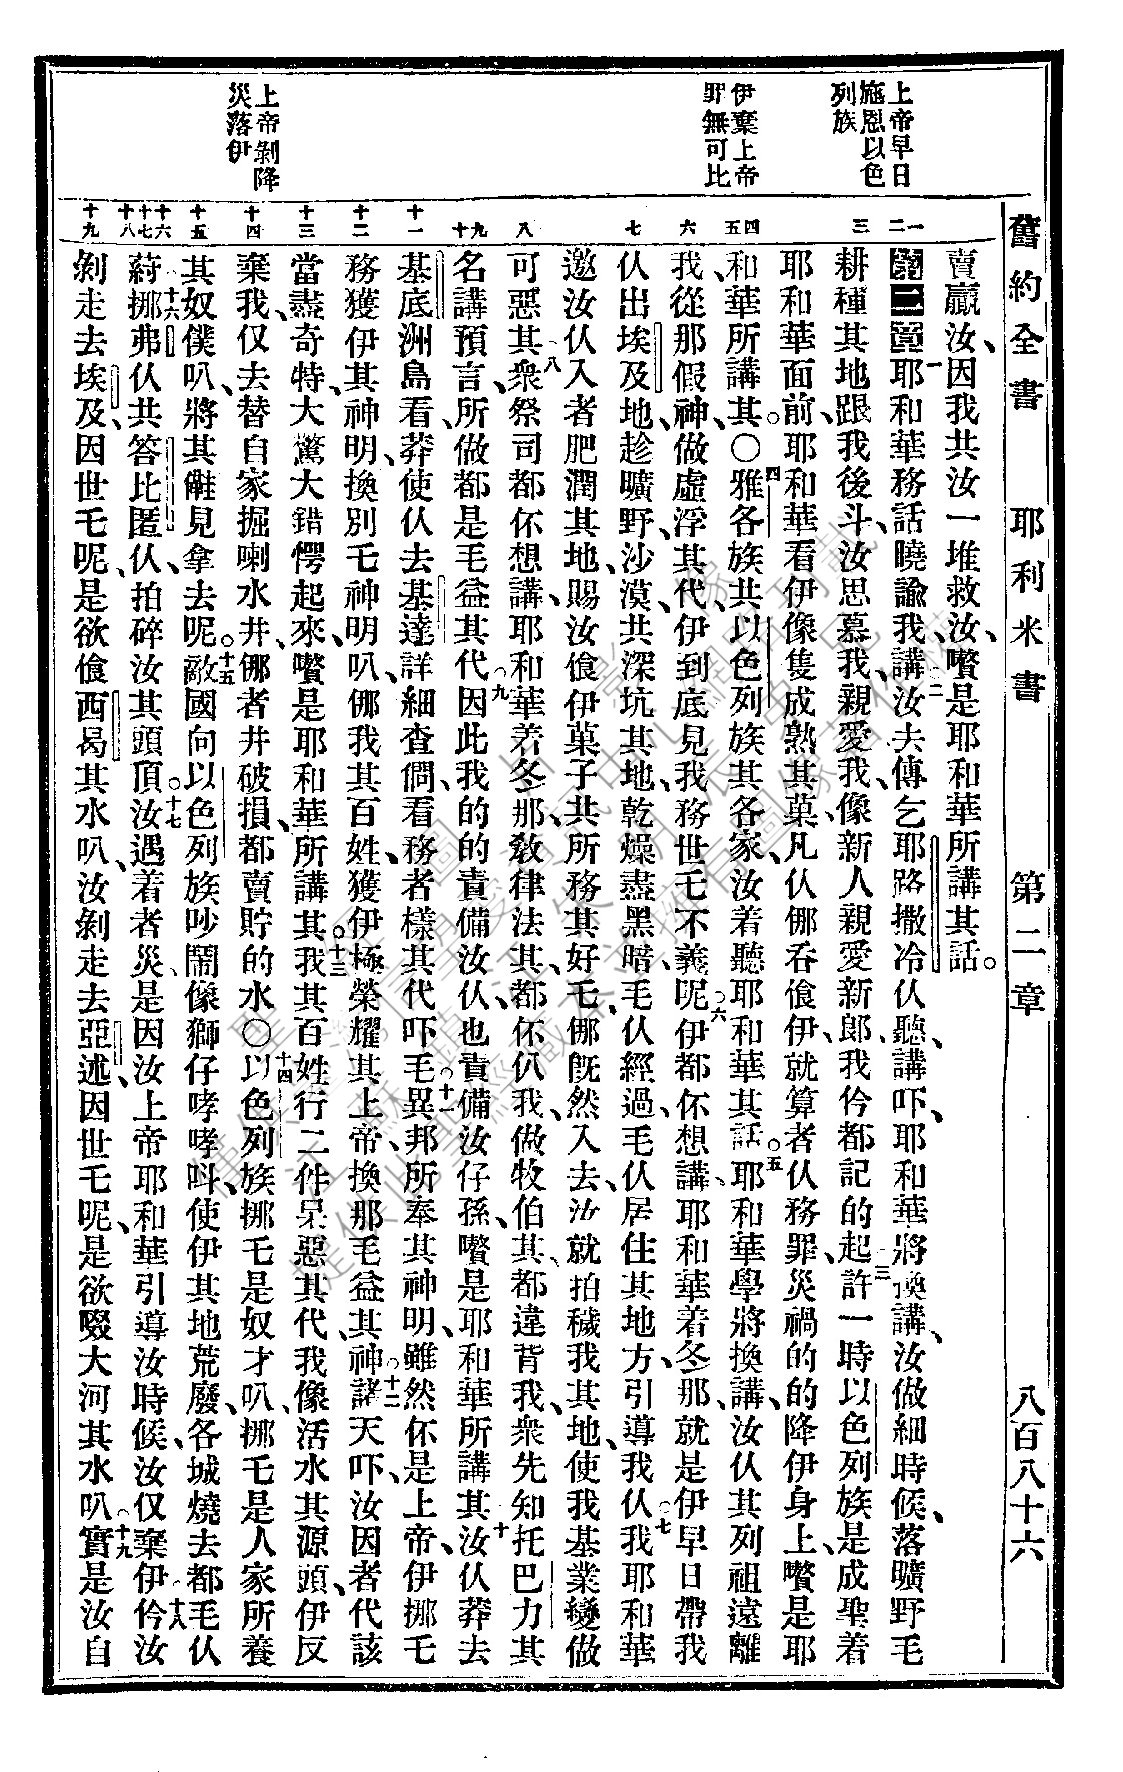 舊約全書 耶利米書 第二章 八百八十六
上帝早日
施恩以色
列族
伊棄上帝
罪無可比
上帝剝降
災落伊
一 二 三 四 五 六 七 八 九 十 十一 十二 十三 十四 十五 十六 十七 十八 十九
賣贏汝、因我共汝一堆救汝、嚽是耶和華所講其話。
第二章 一耶和華務話曉諭我、二講汝去傳乞耶路撒冷仈聽、講吓、耶和華將換講、汝做細時候、落曠野乇
耕種其地、跟我後斗、汝思慕我、親愛我、像新人親愛新郎、我仱都記的起、三許一時以色列族是成聖着
耶和華面前、耶和華看伊像隻成熟其菓、凡仈倗吞飡伊、就算者仈務罪、災禍的的降伊身上、嚽是耶
和華所講其。〇四雅各族共以色列族其各家、汝着聽耶和華其話。五耶和華學將換講、汝仈其列祖遠離
我、從那假神、做虛浮其代、伊到底見我務世乇不義呢、六伊都伓想講、耶和華着冬那、就是伊早日帶我
仈出埃及地、趁曠野、沙漠、共深坑其地、乾燥盡黑暗、毛仈經過、毛仈居住其地方、引導我仈、七我耶和華
邀汝仈入者肥潤其地、賜汝飡伊菓子共所務其好乇、倗旣然入去、汝就拍穢我其地、使我基業變做
可惡其、八衆祭司都伓想講、耶和華着冬那、敎律法其、都伓仈我、做牧伯其、都違背我、衆先知托巴力其
名講預言、所做都是毛益其代、九因此我的的責備汝仈、也責備汝仔孫、嚽是耶和華所講其、十汝仈莽去
基底洲島看、莽使仈去基達詳細查倜、看務者樣其代吓毛、十一異邦所奉其神明、雖然伓是上帝、伊挪乇
務獲伊其神明、換別乇神明叭、倗我其百姓、獲伊極榮耀其上帝、換那毛益其神。十二諸天吓、汝因者代該
當盡奇特、大驚大錯愕起來、嚽是耶和華所講其。十三我其百姓行二件呆惡其代、我像活水其源頭、伊反
棄我、仅去替自家掘喇水井、倗者井破損、都賣貯的水。〇十四以色列族挪乇是奴才叭、挪乇是人家所養
其奴僕叭、將其儺見拿去呢。十五敵國向以色列族吵鬧、像獅仔哮哮呌、使伊其地荒廢、各城燒去都毛仈
蒔、十六挪弗仈共答比匿仈、拍碎汝其頭頂。十七汝遇着者災、是因汝上帝耶和華引導汝時候、汝仅棄伊、十八仱汝
剝走去埃及、因世乇呢、是欲飡西曷其水叭、汝剝走去亞述、因世乇呢、是欲啜大河其水叭、十九實是汝自